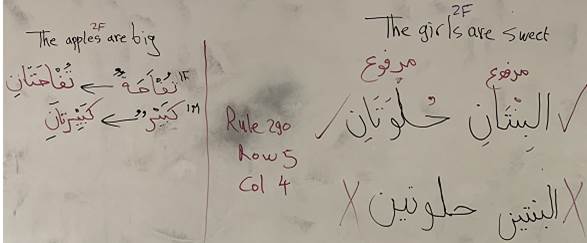 The apples are big
2F
تُفَّاحَة ← تُفَّاحَتَانِ
1F
كَبِيْر ← كَبِيْرتَانِ
1M
Rule 290
Row 5
Col 4
The girls are sweet
2F
مرفوع مرفوع
✓ البِنْتَانِ حُلْوَتَانِ ✓
X البنتين حلوتين X